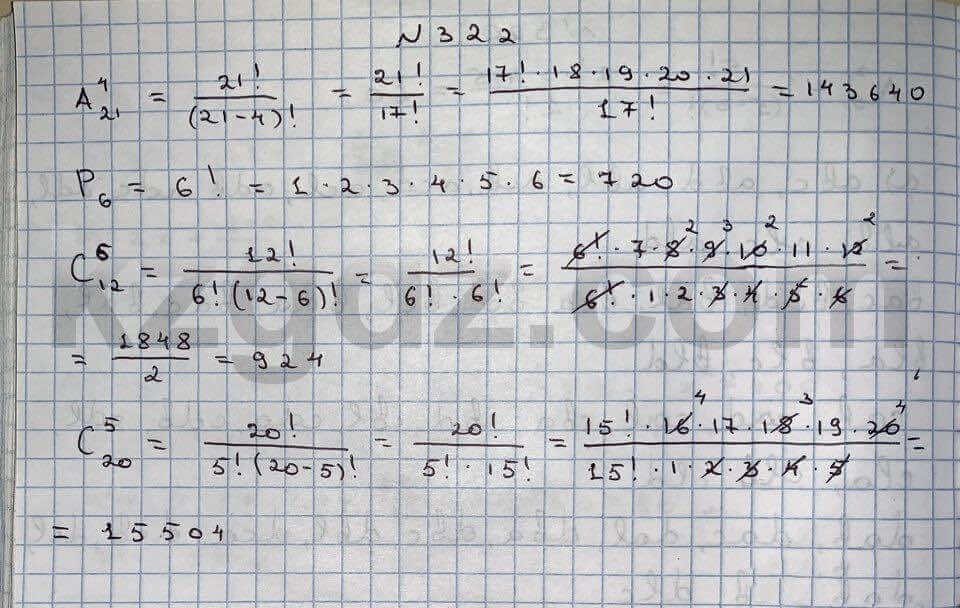 N 322
A₂₁⁴ = 21! / (21-4)! = 21! / 17! = 17!·18·19·20·21 / 17! = 143640
P₆ = 6! = 1·2·3·4·5·6 = 720
C₁₂⁶ = 12! / 6!(12-6)! = 12! / 6!·6! = 6!·7·8²·9³·10²·11·12² / 6!·1·2·3·4·5·6 =
= 1848 / 2 = 924
C₂₀⁵ = 20! / 5!(20-5)! = 20! / 5!·15! = 15!·16⁴·17·18³·19·20⁴ / 15!·1·2·3·4·5 =
= 15504
kzgdz.com